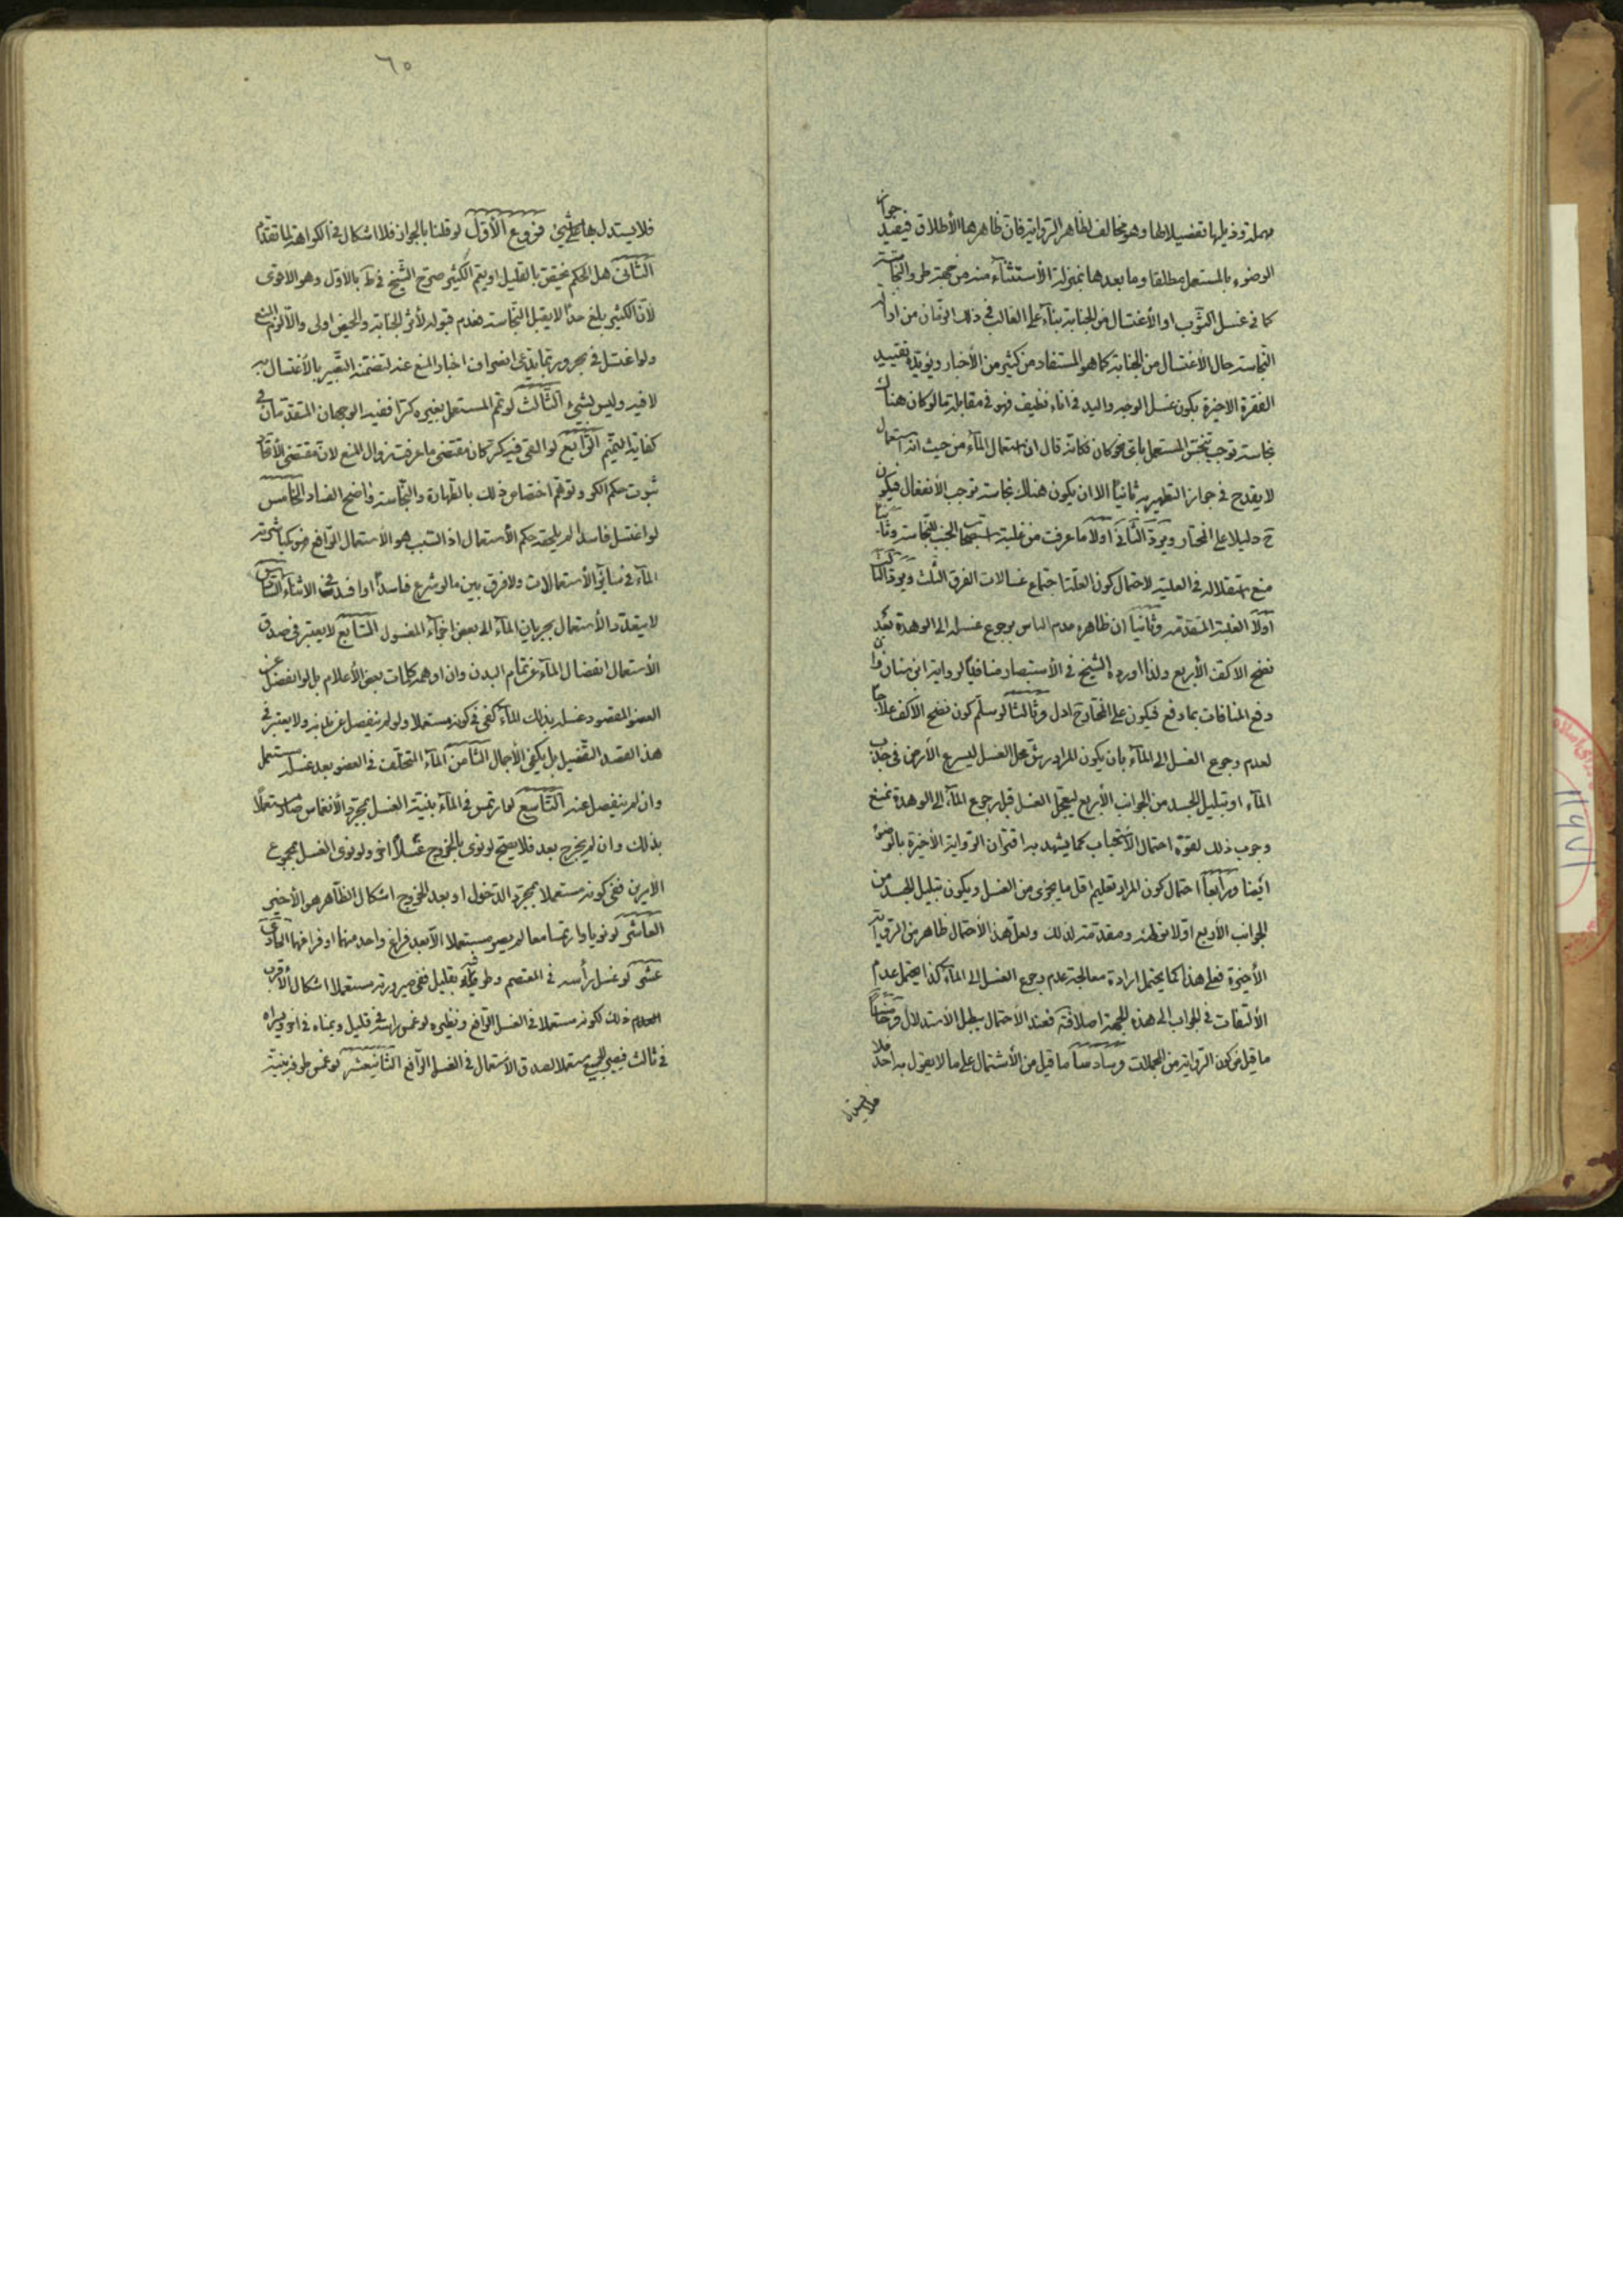 مهملة وذيلها تفصيلا لها وهو مخالف لظاهر الرواية فان ظاهرها الأطلاق فيفيد جواز
الوضوء بالمستعمل مطلقا وما بعدها بمنزلة الأستثناء منه من جهة طرو النجاسة
كما في غسل الثوب او الأغتسال من الجنابة بناء على الغالب في ذلك الزمان من
النجاسة حال الاغتسال من الجنابة كما هو المستفاد من كثير من الأخبار ويؤيده تقييد
الفقرة الاخيرة بكون غسل الوجه واليد في اناء نظيف فهو في مقابلة ما لو كان هناك
نجاسة توجب تنجس المستعمل باي نحو كان فكانه قال ان استعمال الماء من حيث انه استعمال
لا يقدح في جواز التطهير به ثانيا الا ان يكون هناك نجاسة توجب الأنفعال فيكون
ح دليلا على المختار ويرد الثاني اولا ما عرفت من غلبة الجنب للنجاسة وثانيا
منع استقلاله في العلية لاحتمال كون العلة اجتماع غسالات الفرق الثلث ويرد الثالث
اولا الغلبة المتقدمة وثانيا ان ظاهره عدم الباس برجوع غسله الى الوهدة بعد
نضح الاكف الأربع ولذا اورده الشيخ في الأستبصار منافيا لرواية ابن سنان وان
دفع المنافات بما دفع فيكون على المختار ح ادل وثالثا لو سلم كون نضح الاكف علاجا
لعدم رجوع الغسل الى الماء بان يكون المراد رش محل الغسل ليسرع الأرض في جذب
الماء او تبليل الجسد من الجوانب الأربع ليعجل الغسل قبل رجوع الماء الى الوهدة نمنع
وجوب ذلك لقوة احتمال الأستحباب كما يشهد به اقتران الرواية الأخيرة بالوضوء
ايضا ورابعا احتمال كون المراد تعليم اقل ما يجزي من الغسل ويكون تبليل الجسد من
الجوانب الأربع اولا توطئة ومقدمة لذلك ولعل هذا الأحتمال ظاهر من الرواية
الأخيرة فعلى هذا كما يحتمل ارادة معالجة عدم رجوع الغسل الى الماء كذا يحتمل عدم
الألتفات في الجواب الى هذه الجهة اصلا فعند الأحتمال يبطل الأستدلال وخامسا
ما قيل من كون الرواية من المجملات وسادسا ما قيل من الأشتمال على ما لا يقول به احد فلا
فلا يستدل
٦٥
فلا يستدل بها على شيئ فروع الأول لو قلنا بالجواز فلا اشكال في الكراهة لما تقدم
الثاني هل الحكم يختص بالقليل او يعم الكثير صرح الشيخ في ط بالاول وهو الاقوى
لأن الكثير يبلغ حدا لا يقبل النجاسة فعدم قبوله لأثر الجنابة والحيض اولى والا لزم المنع
ولو اغتسل في بحر وربما يدعى انصراف اخبار المنع عنه لتضمنه التعبير بالأغتسال به
لا فيه وليس بشيئ الثالث لو تمم المستعمل بغيره كرا ففيه الوجهان المتقدمان في
كفاية التتميم الرابع لو القي فيه كر كان مقتضى ما عرفت زوال المنع لان مقتضى الأتحاد
ثبوت حكم الكر وتوهم اختصاص ذلك بالطهارة والنجاسة واضح الفساد الخامس
لو اغتسل فاسدا لم يلحقه حكم الأستعمال اذ السبب هو الأستعمال الرافع
الماء في سائر الأستعمالات ولا فرق بين ما لو شرع فاسدا او افسد في الاثناء السادس
لا يتعدد الأستعمال بجريان الماء الى بعض اجزاء المغسول السابع لا يعتبر في صدق
الأستعمال انفصال الماء عن تمام البدن وان اوهمه كلمات بعض الأعلام بل لو انفصل عن
العضو المقصود غسله بذلك الماء كفى في كونه مستعملا ولو لم ينفصل عن بدنه ولا يعتبر في
هذا القصد التفصيل بل يكفي الأجمال الثامن الماء المتخلف في العضو بعد غسله مستعمل
وان لم ينفصل عنه التاسع لو ارتمس في الماء بنية الغسل بمجرد الأنغماس صار مستعملا
بذلك وان لم يخرج بعد فلا يصح لو نوى بالخروج غسلا اخر ولو نوى الغسل بمجموع
الأمرين ففي كونه مستعملا بمجرد الدخول او بعد الخروج اشكال الظاهر هو الأخير
العاشر لو نويا وارتمسا معا لم يصر مستعملا الا بعد فراغ واحد منهما او فراغهما الحادي
عشر لو غسل رأسه في المعتصم وطرفيه بقليل ففي صيرورته مستعملا اشكال الأقرب
ذلك لكونه مستعملا في الغسل الرافع ونظيره لو غمس راسه في قليل ويمناه في اخر ويسراه
في ثالث فيصير الجميع مستعملا لصدق الاستعمال في الغسل الرافع الثانيعشر لو غمس طرفه بنية